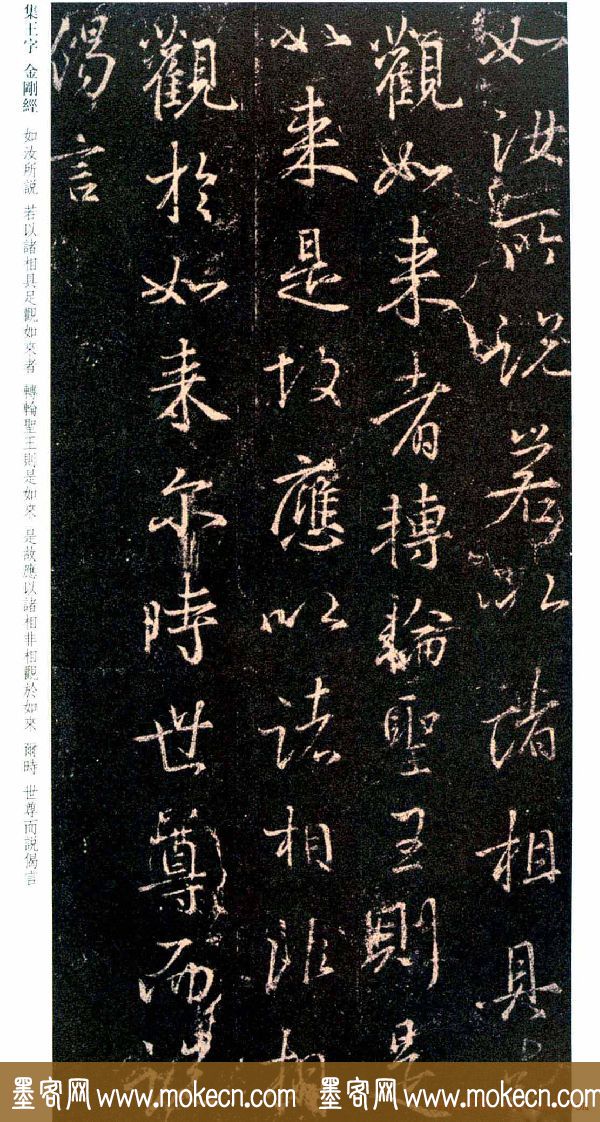 如汝所説若以諸相具足
觀如来者轉輪聖王則是
如来是故應以諸相非相
觀於如来尔時世尊而説
偈言
集王字 金剛經 如汝所説 若以諸相具足觀如來者 轉輪聖王則是如來 是故應以諸相非相觀於如來 爾時 世尊而說偈言
墨客网 www.mokecn.com 墨客网 www.mokecn.com 墨客网 www.mokecn.com